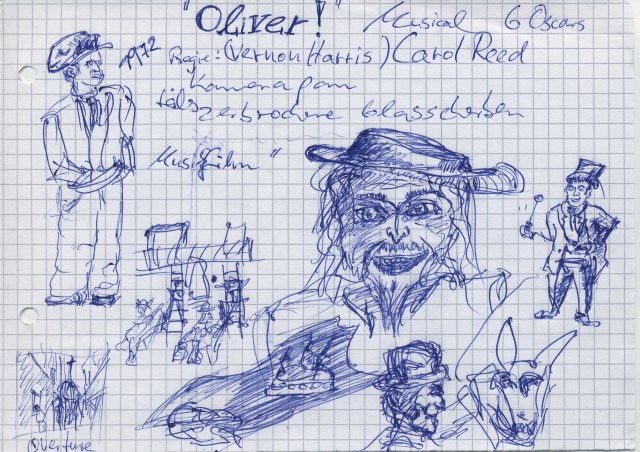 "Oliver!" Musical 6 Oscars
1972
Regie: (Vernon Harris) Carol Reed
Kamera
zerbrochene Glasscherben
Musikfilm"
Overture